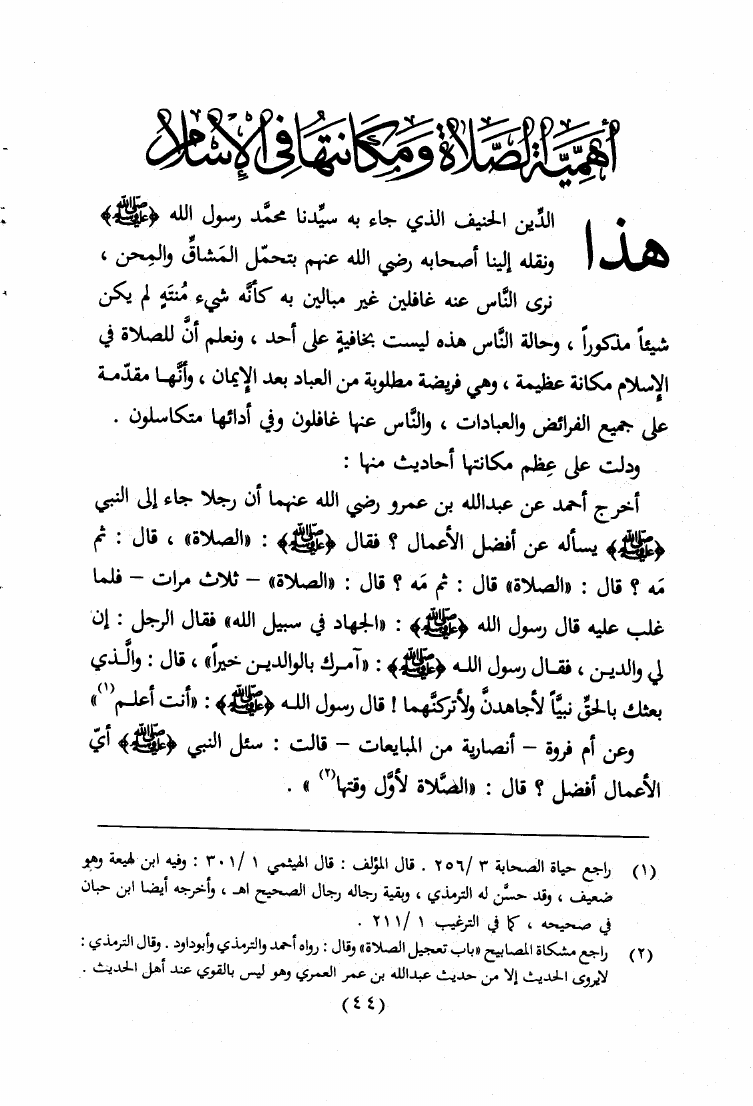 أهميَّة الصَّلاة ومكانتها في الإسلام
هذا الدِّين الحنيف الذي جاء به سيِّدنا محمَّد رسول الله ﴿ﷺ﴾
ونقله إلينا أصحابه رضي الله عنهم بتحمّل المَشاقِّ والمِحن ،
نرى النَّاس عنه غافلين غير مبالين به كأنَّه شيء مُنتَهٍ لم يكن
شيئاً مذكوراً ، وحالة النَّاس هذه ليست بخافيةٍ على أحد ، ونعلم أنَّ للصلاة في
الإسلام مكانة عظيمة ، وهي فريضة مطلوبة من العباد بعد الإيمان ، وأنَّهـا مقدّمـة
على جميع الفرائض والعبادات ، والنَّاس عنها غافلون وفي أدائها متكاسلون .
ودلت على عِظم مكانتها أحاديث منها :
أخرج أحمد عن عبدالله بن عمرو رضي الله عنهما أن رجلا جاء إلى النبي
﴿ﷺ﴾ يسأله عن أفضل الأعمال ؟ فقال ﴿ﷺ﴾ : «الصلاة» ، قال : ثم
مَه ؟ قال : «الصلاة» قال : ثم مَه ؟ قال : «الصلاة» – ثلاث مرات – فلما
غلب عليه قال رسول الله ﴿ﷺ﴾ : «الجهاد في سبيل الله» فقال الرجل : إن
لي والدين ، فقـال رسول اللـه ﴿ﷺ﴾ : «آمـرك بالوالديـن خيراً» ، قال : والَّـذي
بعثك بالحقِّ نبيَّاً لأجاهدنَّ ولأتركنَّهما ! قال رسول اللـه ﴿ﷺ﴾ : «أنت أعلـم(١)»
وعن أم فروة – أنصارية من المبايعات – قالت : سئل النبي ﴿ﷺ﴾ أيّ
الأعمال أفضل ؟ قال : «الصَّلاة لأوَّل وقتها(٢) » .
(١) راجع حياة الصحابة ٣ /٢٥٦ . قال المؤلف : قال الهيثمي ١ /٣٠١ : وفيه ابن لهيعة وهو
ضعيف ، وقد حسَّن له الترمذي ، وبقية رجاله رجال الصحيح اهـ ، وأخرجه أيضا ابن حبان
في صحيحه ، كما في الترغيب ١ /٢١١ .
(٢) راجع مشكاة المصابيح «باب تعجيل الصلاة» وقال : رواه أحمد والترمذي وأبوداود . وقال الترمذي :
لايروى الحديث إلا من حديث عبدالله بن عمر العمري وهو ليس بالقوي عند أهل الحديث .
(٤٤)